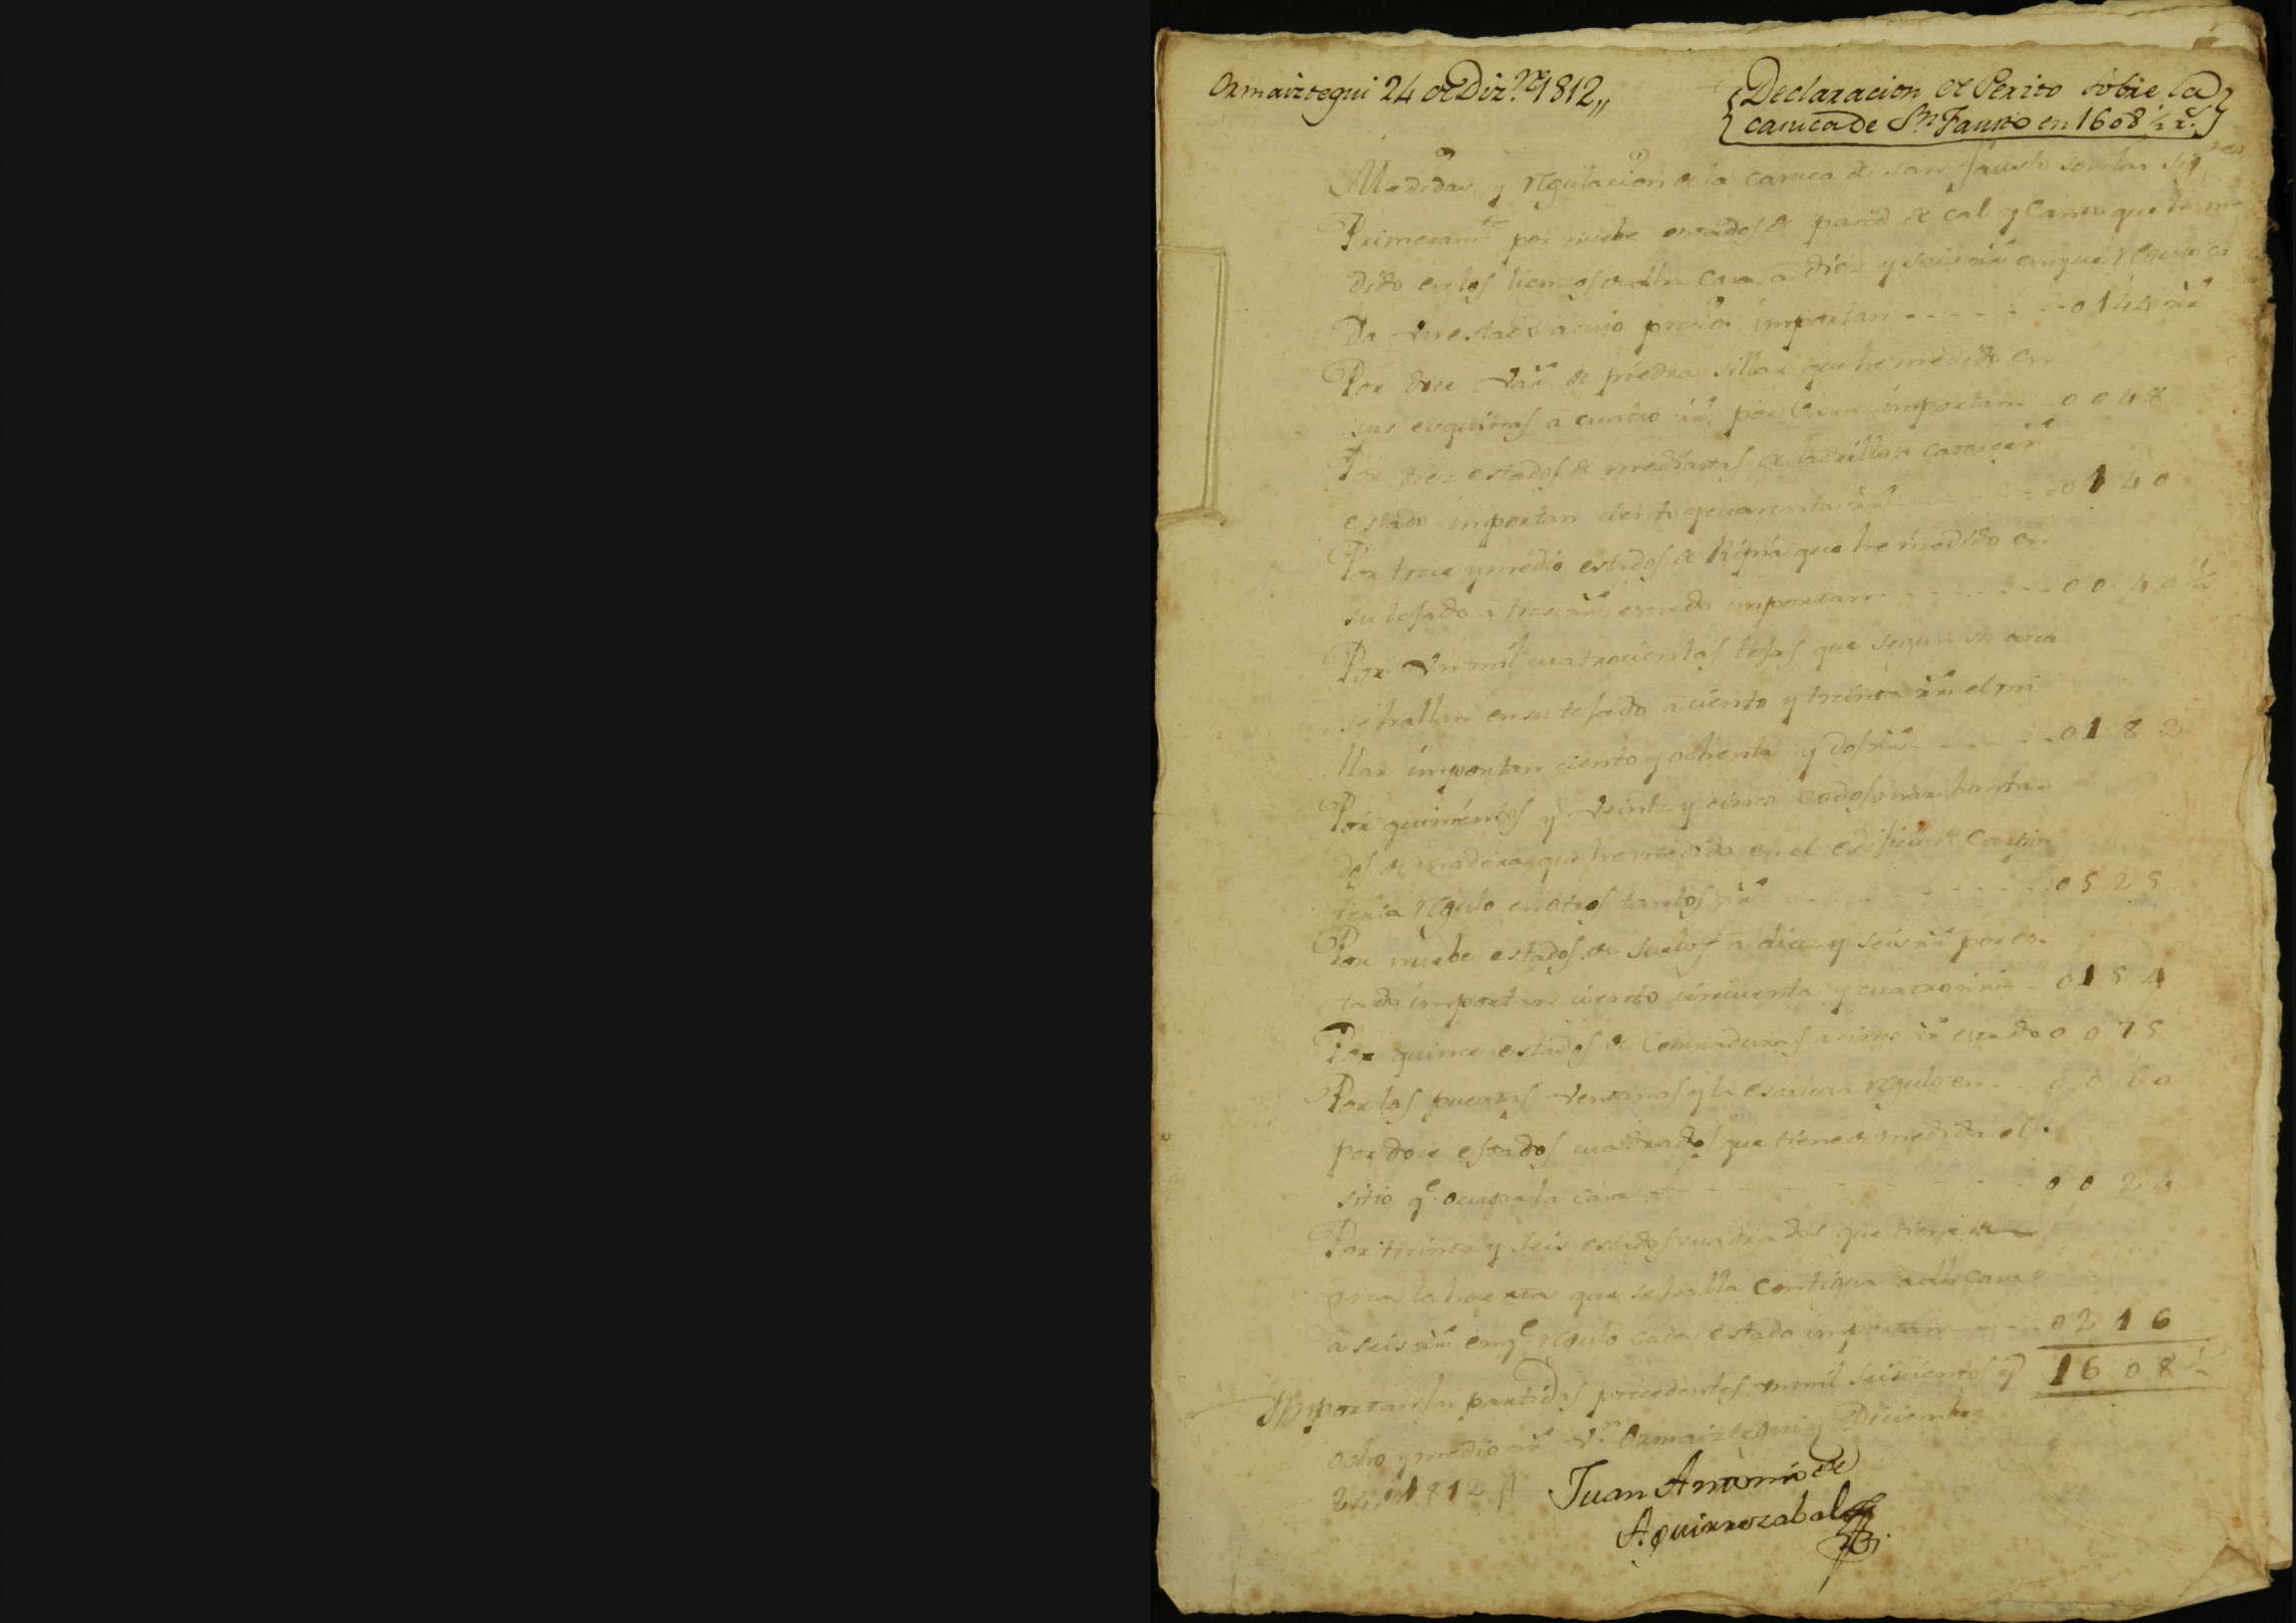 Ormaiztegui 24 de Diz.re 1812,,
Declaracion de Perito sobre la
casica de Sn. Fausto en 1608 ½ rs.
Medidas y regulacion de la casica de san fausto son las sigtes
Primeramte. por nuebe estados de pared de cal y canto que he me
dido en los lienzos de dha casa a diez y seis rrs en que regulo ca
da un estado a cuio precio importan - - - - - - - 0144 rrs
Por doce vars. de piedra sillar que he medido en
sus esquinas a cuatro rrs. por vara importan 0048
Por diez estados de mediartas de ladrillo a catorce rrs
estado importan ciento y cuarenta rrs - - - - - - 0140
Por trece y medio estados de Ripia que he medido en
su tejado a tres rrs estado importan - - - - - - - 0040 ½
Por un mil cuatrocientas tejas que segun su area
se hallan en su tejado a ciento y treinta rrs el mi
llar importan ciento y ochenta y dos rrs - - - - - 0182
Por quinientos y veinte y cinco codos marchanta
dos de madera que he medido en el edificio de carpin
teria regulo en otros tantos rrs - - - - - - - 0525
Por nuebe estados de suelos a diez y seis rrs por es
tado importan ciento cincuenta y cuatro rrs - 0154
Por quince estados de cerraduras a cinco rrs estado 0075
Por las puertas ventanas y la escalera regulo en 0060
por doce estados cuadrados que tiene de medida el
sitio qe. ocupa la casa - - - - - - - 0024
Por treinta y seis estados cuadrados que tiene de
area la huerta que se halla contigua a dha casa
a seis rrs en qe. regulo cada estado importan - - - 0216
Importan las partidas precedentes un mil seiscientos y 1608 ½
ocho y medio rrs vn. Ormaiztegui y Diciembre
24 de 1812
Juan Antonio de
Aguirrezabal